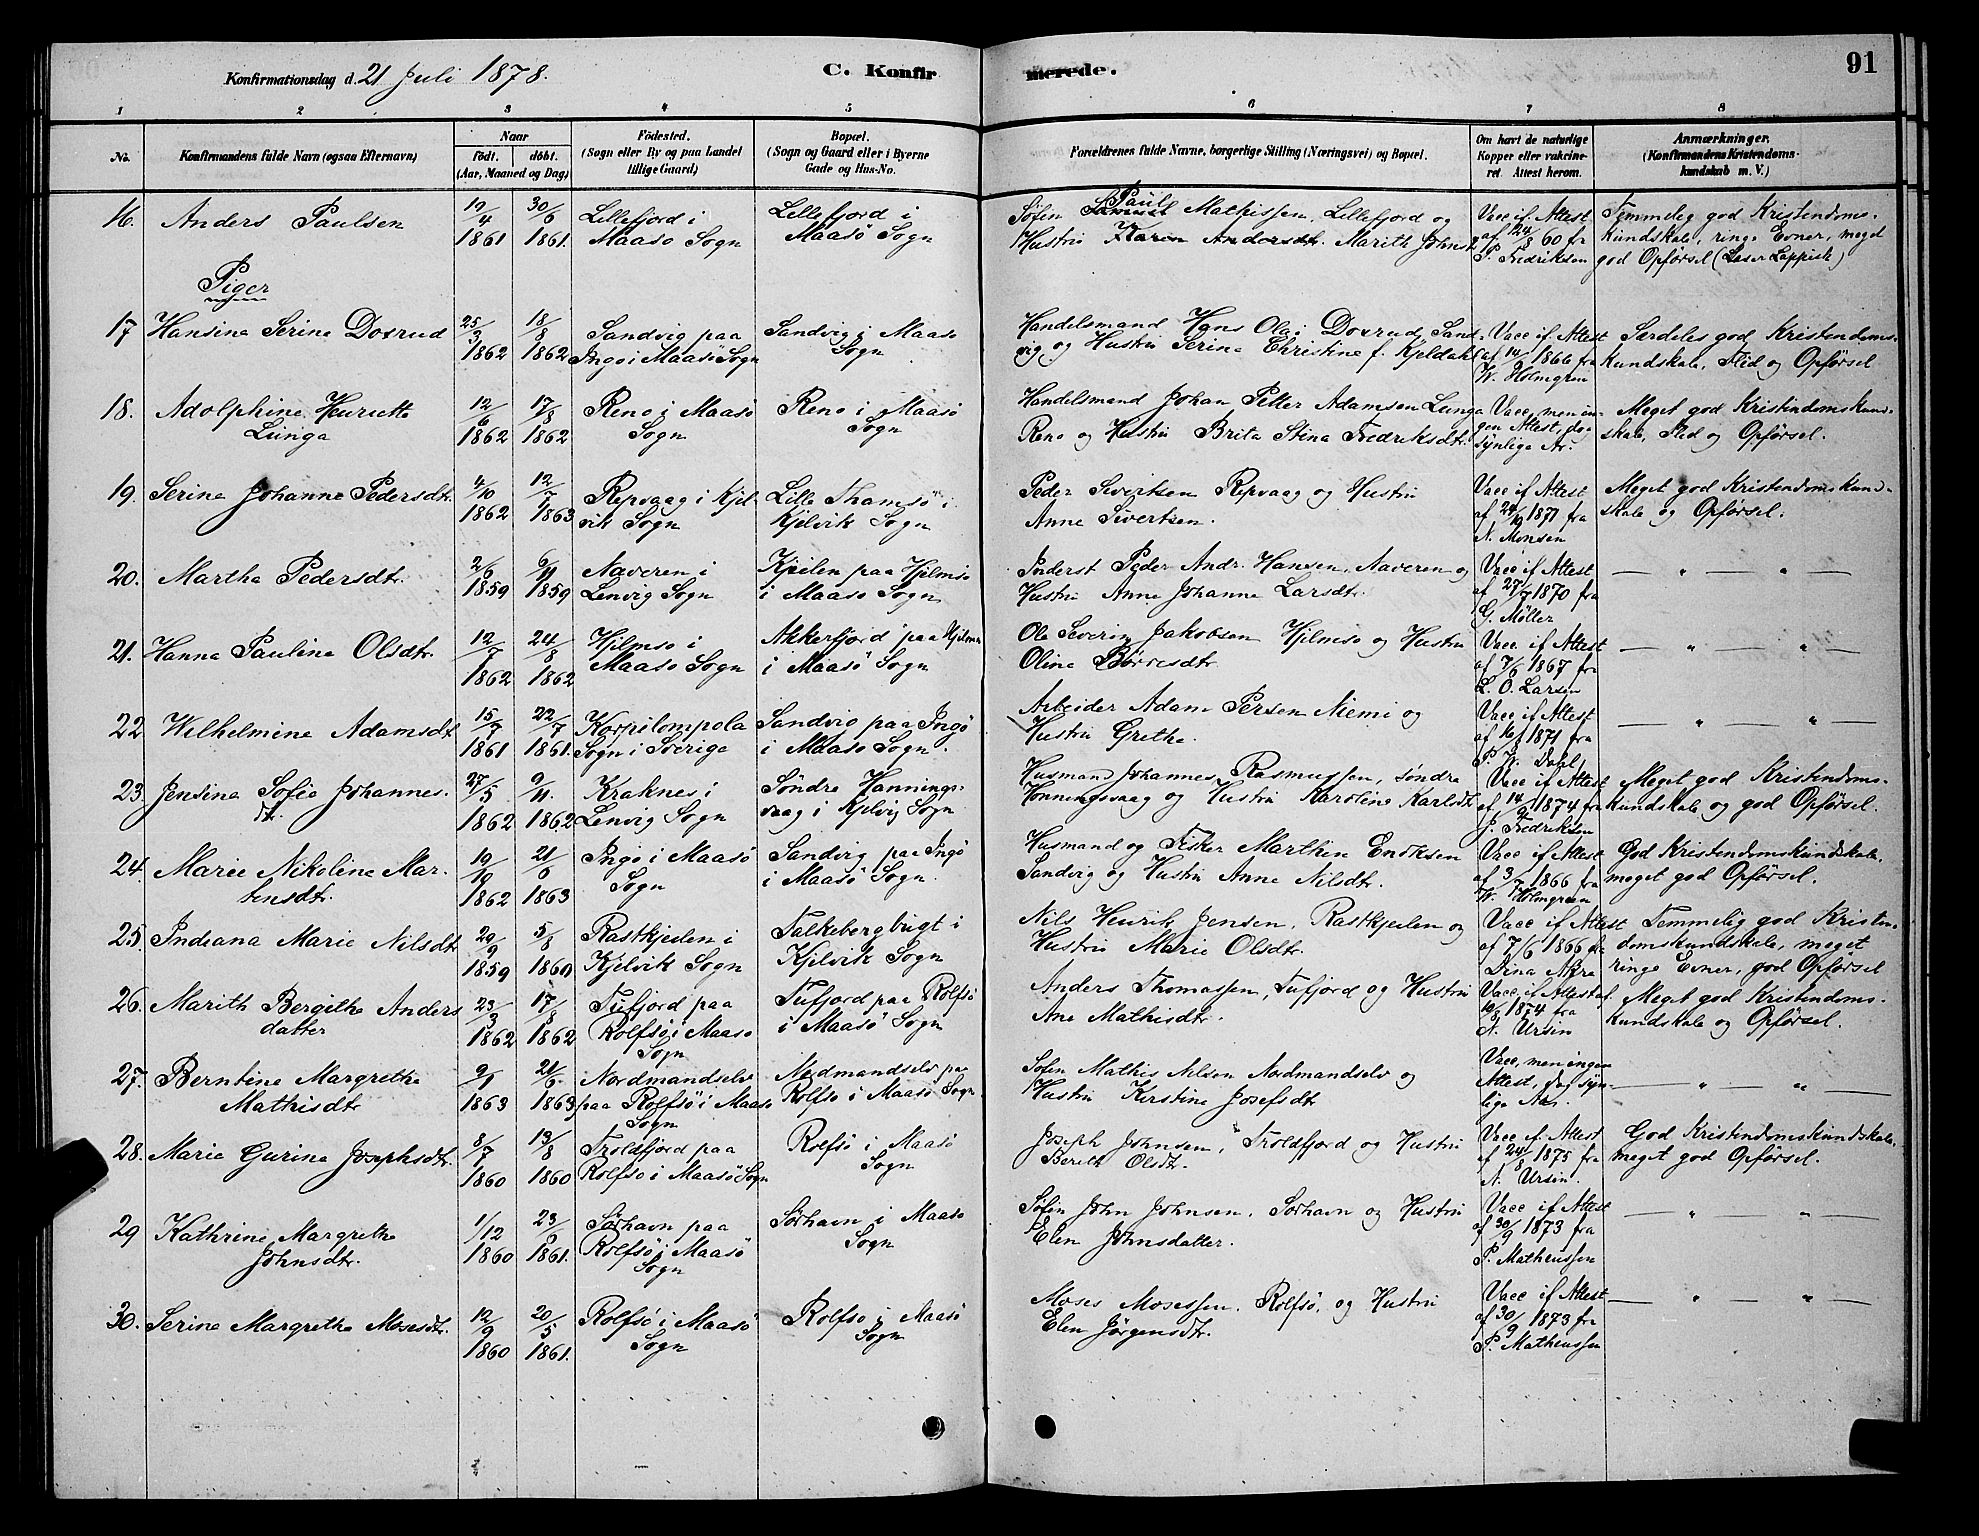 Konfirmationsdag d. 21 Juli 1878.
C. Konfirmerede.
91
1 2 3 4 5 6 7 8
No.
Konfirmandens fulde Navn (ogsaa Efternavn)
Naar
födt. döbt.
(Aar, Maaned og Dag)
Födested.
(Sogn eller By og paa Landet
tillige Gaard)
Bopæl.
(Sogn og Gaard eller i Byerne
Gade og Hus-No.
Forældrenes fulde Navne, borgerlige Stilling (Næringsvei) og Bopæl.
Om havt de naturlige
Kopper eller vakcine-
ret. Attest herom.
Anmærkninger.
(Konfirmandens Kristendoms-
kundskab m. V.)
16. Anders Paulsen
12/4 1861
30/6 1861.
Lillefjord i
Maasø Sogn
Lillefjord i
Maasö Sogn
Søfin Paul Mathissen, Lillefjord og
Hustru Karen Andersdtr. Marith Johns
Vacc if Attest
af 24/8 60 fr
P. Fredriksen
Temmelig god Kristendoms-
kundskab, ringe Evner, meget
god Opførsel (Læser Lappisk)
Piger
17 Hansine Serine Doxrud
25/3 1862
18/8 1862
Sandvig paa
Ingø i Maasö Sogn
Sandvig i Maasø
Sogn
Handelsmand Hans Olai Doxrud, Sand
vig og Hustru Serine Christine f. Kjeldahl
Vacc if Attest
af 14/7 1866 fra
W. Holmgren
Særdeles god Kristendoms-
kundskab, Flid og Opførsel
18. Adolphine Henriette
Lunga
12/6 1862
17/8 1862
Renø i Maasø
Sogn
Renø i Maasø
Sogn
Handelsmand Johan Petter Adamsen Lunga
Renø og Hustru Brita Stina Fredriksdtr.
Vacc, men in-
gen Attest, dog
synlige Ar.
Meget god Kristendomskund-
skab, Flid og Opførsel.
19. Serine Johanne Pedersdtr.
4/10 1862
12/7 1863
Repvaag i Kjel
vik Sogn
Lille Thamsö i
Kjelvik Sogn
Peder Sivertsen Repvaag og Hustru
Anne Sivertsen.
Vacc if Attest
af 24/9 1871 fra
N. Monsen
Meget god Kristendomskund-
skab og Opførsel.
20. Martha Pedersdtr.
2/6 1859
6/11 1859
Naveren i
Lenvig Sogn
Kjeilen paa Hjelmsø
i Maasø Sogn
Inderst Peder Andr. Hansen, Naveren og
Hustru Anne Johanne Larsdtr.
Vacc if Attest
af 27/7 1870 fra
G. Møller
— „ — „ —
21. Hanna Pauline Olsdtr.
12/7 1862
24/8 1862
Hjelmsø i
Maasø Sogn
Akkerfjord paa Hjelmsø
i Maasö Sogn
Ole Severin Jakobsen Hjelmsø og Hustru
Oline Børresdtr.
Vacc. if Attest
af 7/6 1867 fra
L. O. Larsen
— „ — „ —
22 Wilhelmine Adamsdtr
15/7 1861
22/7 1861.
Korpilompola
Sogn i Sverige
Sandvig paa Ingø
i Maasø Sogn.
Arbeider Adam Persen Niemi og
Hustru Grethe.
Vacc if Attest
1871 fra
P. W. Dahl
— „ — „ —
23. Jensine Sofie Johannes.
dt.
27/5 1862
9/11. 1862
Kraknes i
Lenvig Sogn
Søndre Hannings-
vaag i Kjelvig Sogn
Husmand Johannes Rasmussen, søndre
Honningsvaag og Hustru Karoline Karlsdtr
Vacc if Attest
af 14/9 1874 fra
J. Fredriksen
Meget god Kristendoms-
kundskab og god Opførsel.
24. Marie Nikoline Mar-
tensdtr.
19/10 1862
21/6 1863
Ingø i Maasø
Sogn
Sandvig paa Ingø
i Maasö Sogn.
Husmand og Fisker Marthin Endresen
Sandvig og Hustru Anne Nilsdtr.
Vacc if Attest
af 3/7 1866 fra
W. Holmgreen
God Kristendomskundskab,
meget god Opførsel.
25. Indiana Marie Nilsdtr
29/9 1859
5/8 1860
Rastkjeilen i
Kjelvik Sogn
Falkebergbugt i
Kjelvik Sogn
Nils Henrik Jensen, Rastkjeilen og
Hustru Marie Olsdtr.
Vacc if Attest
af 7/6 1866 fra
Dina Akre
Temmelig god Kristen-
domskundskab, meget
ringe Evner, god Opførsel
26. Marith Bergithe Anders
datter
23/3 1862
17/8 1862
Tufjord paa
Rolfsø i Maasø
Sogn
Tufjord paa Rolfsø
i Maasö Sogn
Anders Thomassen, Tufjord og Hustru
Ane Mathisdtr.
Vacc. if Attest af.
1874 fra
N. Ursin
Meget god Kristendoms-
kundskab og Opførsel.
27. Berntine Margrethe
Mathisdtr
9/1 1863
21/6. 1863
Nordmandselv
paa Rolfsö i Maasø
Sogn
Nordmandselv paa
Rolfsø i Maasø Sogn
Søfin Mathis Nilsen Nordmandselv og
Hustru Kirstine Josefsdtr
Vacc, men ingen
Attest, dog syn-
lige Ar.
— „ — „ —
28. Marie Gurine Josephsdtr.
8/7 1860
13/8 1860
Troldfjord paa
Rolfsø i Maasö Sogn
Rolfsø i Maasø
Sogn
Joseph Johnsen, Troldfjord og Hustru
Bereth Olsdtr.
Vacc if. Attest
af 24/8 1875 fra
N. Ursin.
God Kristendomskundskab
meget god Opførsel.
29 Kathrine Margrethe
Johnsdtr.
1/12 1860
23/6 1861.
Sørhavn paa
Rolfsø i Maasø
Sogn
Sørhavn i Maasø
Sogn
Søfin John Johnsen, Sørhavn og Hustru
Elen Johnsdatter.
Vacc if Attest
af 30/9 1873 fra
P. Matheussen
— „ — „ —
30. Serine Margrethe Mosesdtr.
12/9 1860
20/5 1861.
Rolfsö i Maasö
Sogn
Rolfsø i Maasö
Sogn
Moses Mosessen, Rolfsø, og Hustru
Elen Jørgensdtr.
Vacc if Attest
af 30/9 1873 fra
P. Matheussen
— „ — „ —